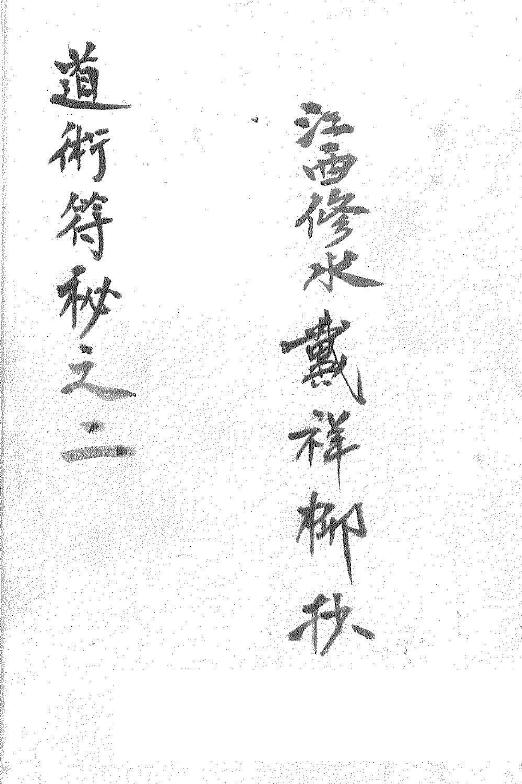 江西修水戴祥柳抄
道術符秘之二